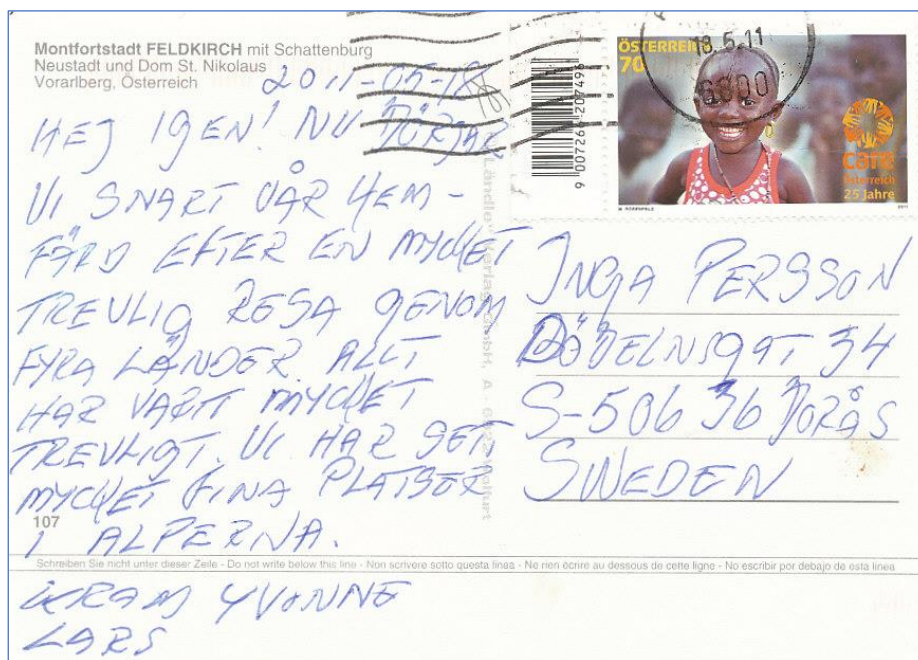 Montfortstadt FELDKIRCH mit Schattenburg
Neustadt und Dom St. Nikolaus
Vorarlberg, Österreich
2011-05-18
HEJ IGEN! NU BÖRJAR
VI SNART VÅR HEM-
FÄRD EFTER EN MYCKET
TREVLIG RESA GENOM
FYRA LÄNDER. ALLT
HAR VARIT MYCKET
TREVLIGT. VI HAR SETT
MYCKET FINA PLATSER
I ALPERNA.
107
Schreiben Sie nicht unter dieser Zeile - Do not write below this line - Non scrivere sotto questa linea - Ne rien écrire au dessous de cette ligne - No escribir por debajo de esta linea
KRAM YVONNE
LARS
Ländle Verlag GmbH, A -
9 007266 207496
ÖSTERREICH
70
18.5.11
6800
care
Österreich
25 Jahre
2011
INGA PERSSON
DÖBELNSGAT 34
S-506 36 BORÅS
SWEDEN